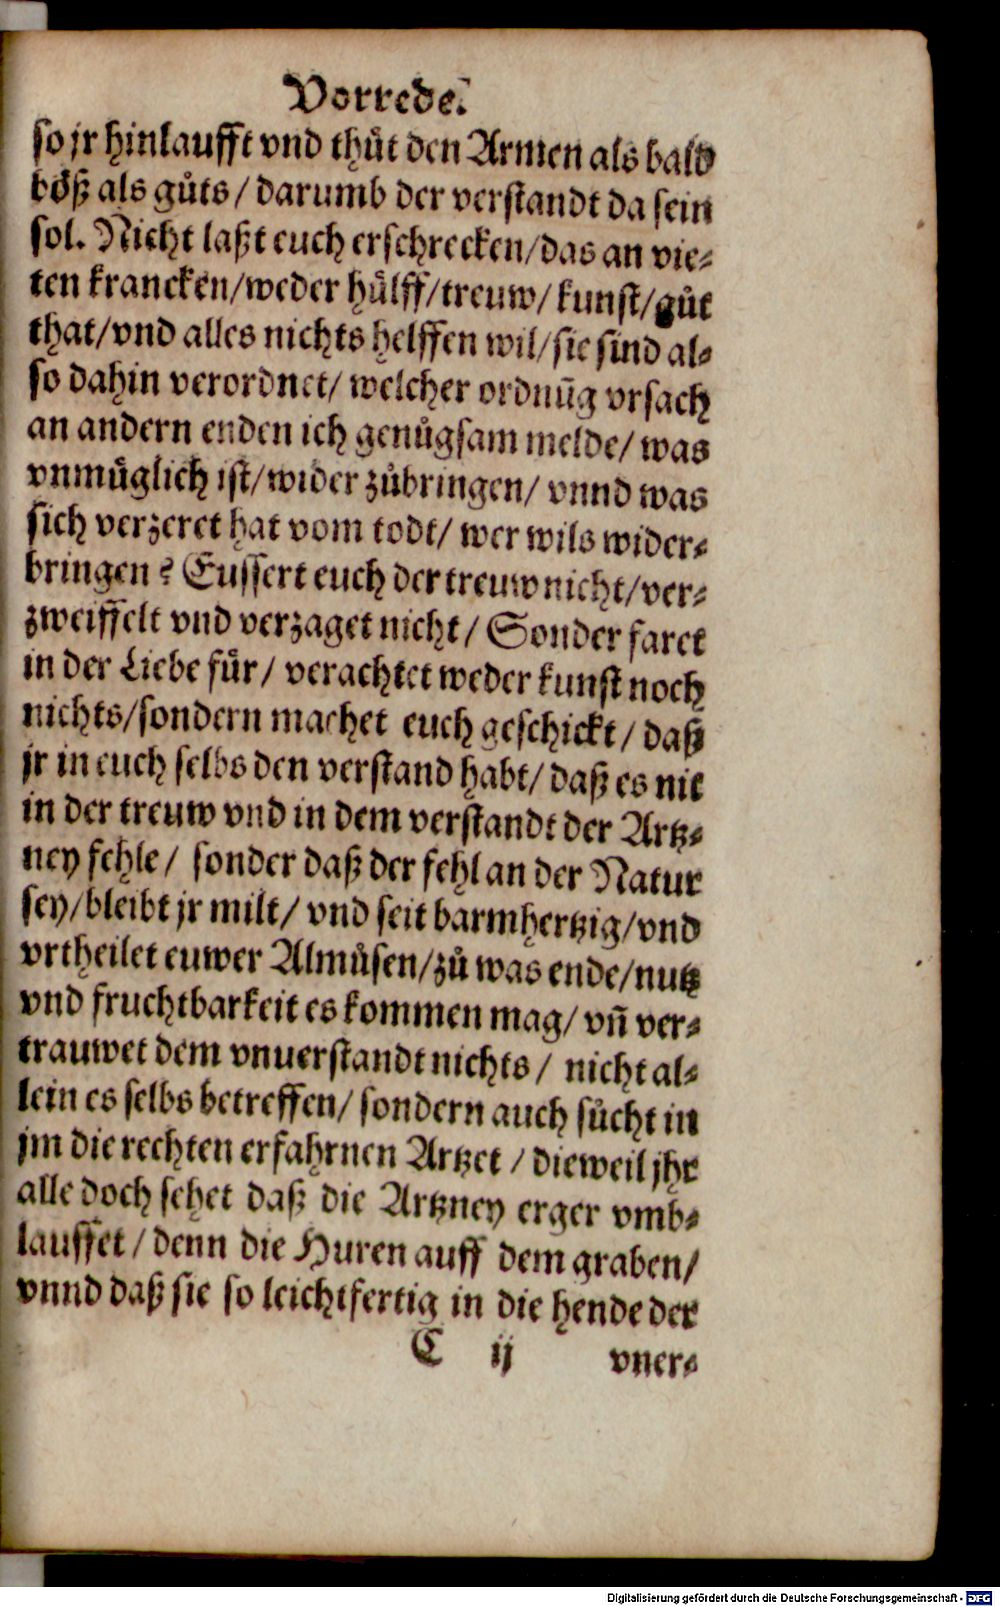 Vorrede.
so jr hinlaufft vnd thůt den Armen als bald
böß als gůts / darumb der verstandt da sein
sol. Nicht laßt euch erschrecken/das an vie⸗
ten krancken/weder hülff/treuw/kunst/gůt
that/vnd alles nichts helffen wil/sie sind al⸗
so dahin verordnet/ welcher ordnūg vrsach
an andern enden ich genůgsam melde/ was
vnmüglich ist/wider zůbringen/ vnnd was
sich verzeret hat vom todt/ wer wils wider⸗
bringen? Eussert euch der treuw nicht/ver⸗
zweiffelt vnd verzaget nicht/ Sonder faret
in der Liebe für/ verachtet weder kunst noch
nichts/sondern machet euch geschickt/ daß
jr in euch selbs den verstand habt/ daß es nit
in der treuw vnd in dem verstandt der Artz⸗
ney fehle/ sonder daß der fehl an der Natur
sey/bleibt jr milt/ vnd seit barmhertzig/vnd
vrtheilet euwer Almůsen/zů was ende/nutz
vnd fruchtbarkeit es kommen mag/ vn̄ ver⸗
trauwet dem vnuerstandt nichts/ nicht al⸗
lein es selbs betreffen/ sondern auch sůcht in
jm die rechten erfahrnen Artzet / dieweil jhr
alle doch sehet daß die Artzney erger vmb⸗
lauffet/ denn die Huren auff dem graben/
vnnd daß sie so leichtfertig in die hende der
C ij vner⸗
Digitalisierung gefördert durch die Deutsche Forschungsgemeinschaft - DFG